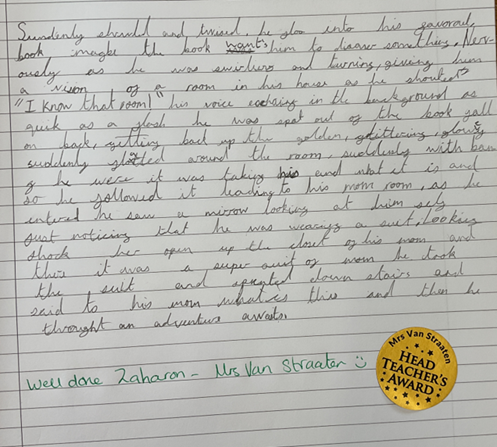 Suddenly shrunld and twised, he glow into his favoroud
book maybe the book wants him to disaver something. Nerv-
ously as he was swirlurg and turning, giving him
a vison of a room in his house as he shouted
"I know that room!" his voice echoing in the background as
quik as a flash he was spat out of the book fall
on back, getting back up the golden, glittering, glowy
suddenly floted around the room, suddenly with
he were it was taking and what it is and
so he followed it leading to his mom room, as he
entered he saw a mirrow looking at him self
Just noticing that he was wearing a suit, Looking
shock her open up the closet of his mom and
this it was a super suit of mom he took
the suit and sprinted down stairs and
said to his mom what is this and then he
throught an adventure awaits.
Well done Zaharon - Mrs Van Straaten
Mrs Van Straaten
HEAD
TEACHER'S
AWARD